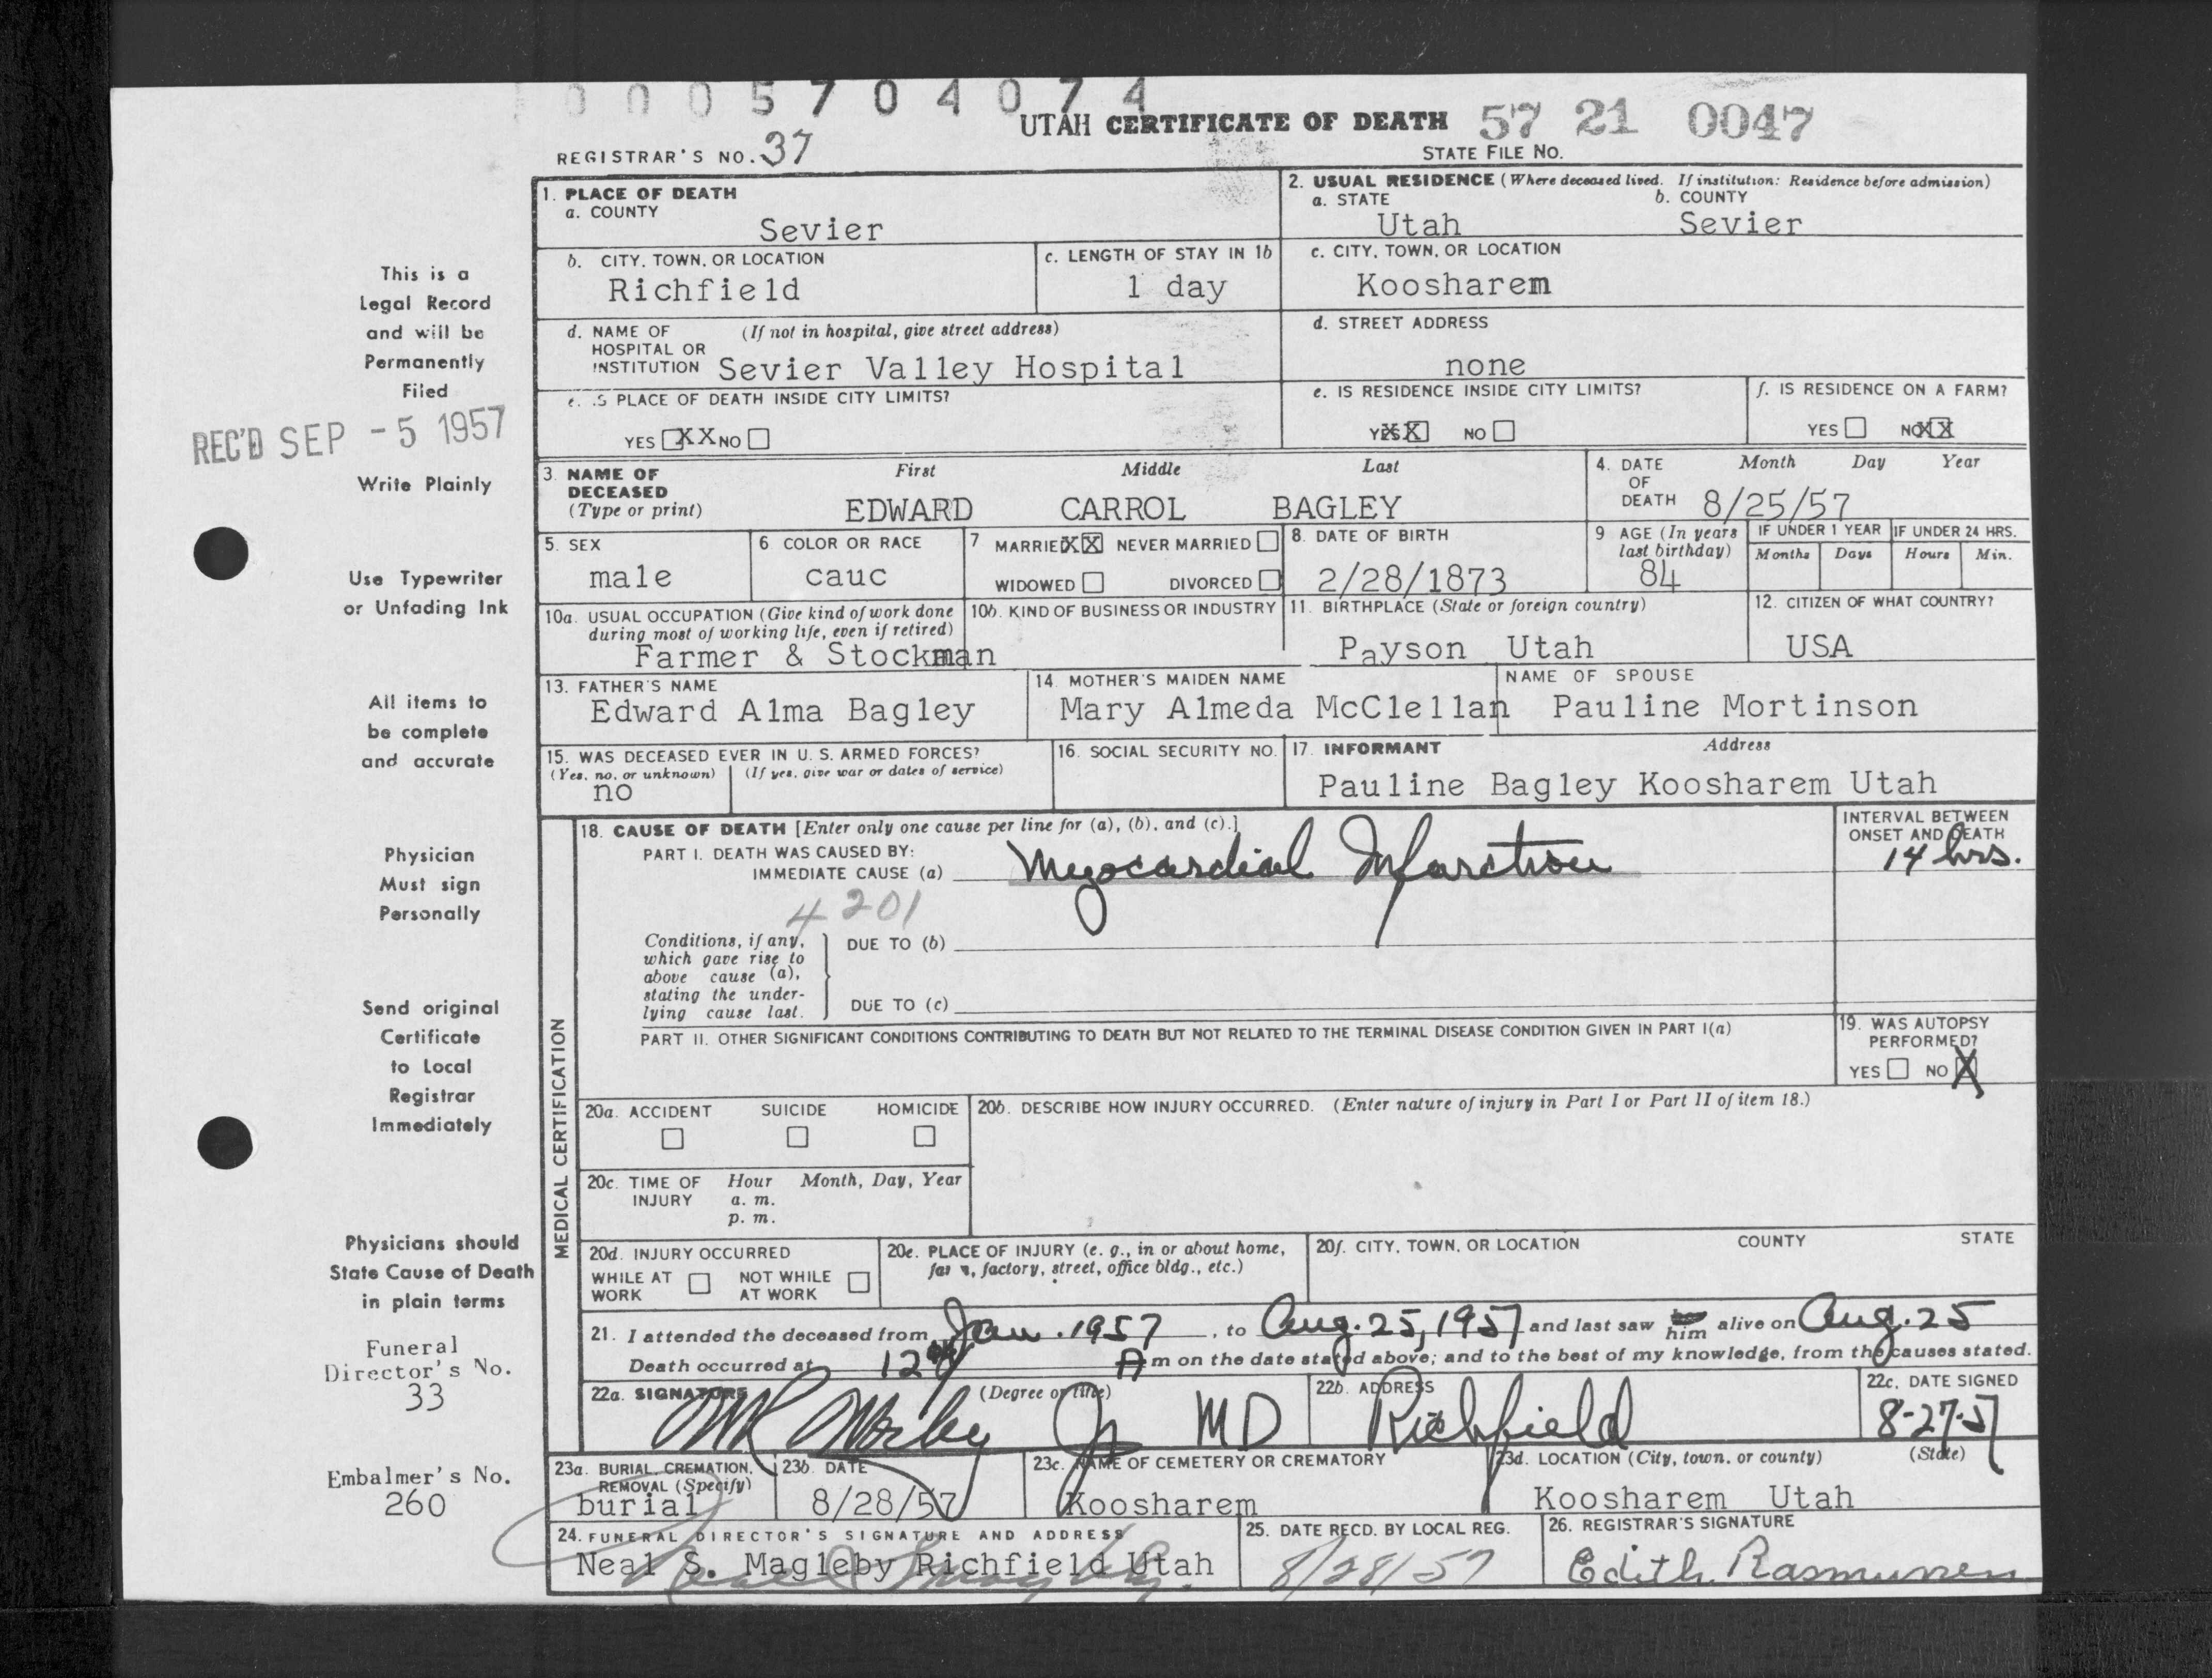 0005704074
UTAH CERTIFICATE OF DEATH 57 21 0047
REGISTRAR'S NO. 37 STATE FILE NO.
1. PLACE OF DEATH
a. COUNTY
Sevier
2. USUAL RESIDENCE (Where deceased lived. If institution: Residence before admission)
a. STATE b. COUNTY
Utah Sevier
b. CITY, TOWN, OR LOCATION
Richfield
c. LENGTH OF STAY IN 1b
1 day
c. CITY, TOWN, OR LOCATION
Koosharem
d. NAME OF (If not in hospital, give street address)
HOSPITAL OR
INSTITUTION Sevier Valley Hospital
d. STREET ADDRESS
none
e. IS PLACE OF DEATH INSIDE CITY LIMITS?
YES XX NO
e. IS RESIDENCE INSIDE CITY LIMITS?
YES XX NO
f. IS RESIDENCE ON A FARM?
YES NO XX
3. NAME OF DECEASED
(Type or print)
First Middle Last
EDWARD CARROL BAGLEY
4. DATE OF DEATH
Month Day Year
8/25/57
5. SEX
male
6 COLOR OR RACE
cauc
7 MARRIED XX NEVER MARRIED
WIDOWED DIVORCED
8. DATE OF BIRTH
2/28/1873
9 AGE (In years last birthday)
84
IF UNDER 1 YEAR IF UNDER 24 HRS.
Months Days Hours Min.
10a. USUAL OCCUPATION (Give kind of work done
during most of working life, even if retired)
Farmer & Stockman
10b. KIND OF BUSINESS OR INDUSTRY
11. BIRTHPLACE (State or foreign country)
Payson Utah
12. CITIZEN OF WHAT COUNTRY?
USA
13. FATHER'S NAME
Edward Alma Bagley
14. MOTHER'S MAIDEN NAME
Mary Almeda McClellan
NAME OF SPOUSE
Pauline Mortinson
15. WAS DECEASED EVER IN U. S. ARMED FORCES?
(Yes, no, or unknown) (If yes, give war or dates of service)
no
16. SOCIAL SECURITY NO.
17. INFORMANT Address
Pauline Bagley Koosharem Utah
MEDICAL CERTIFICATION
18. CAUSE OF DEATH [Enter only one cause per line for (a), (b), and (c).]
PART I. DEATH WAS CAUSED BY:
IMMEDIATE CAUSE (a) Myocardial Infarction
INTERVAL BETWEEN
ONSET AND DEATH
14 hrs.
4201
Conditions, if any,
which gave rise to
above cause (a),
stating the under-
lying cause last.
DUE TO (b)
DUE TO (c)
PART II. OTHER SIGNIFICANT CONDITIONS CONTRIBUTING TO DEATH BUT NOT RELATED TO THE TERMINAL DISEASE CONDITION GIVEN IN PART I(a)
19. WAS AUTOPSY
PERFORMED?
YES NO X
20a. ACCIDENT SUICIDE HOMICIDE
20b. DESCRIBE HOW INJURY OCCURRED. (Enter nature of injury in Part I or Part II of item 18.)
20c. TIME OF INJURY Hour Month, Day, Year
a. m.
p. m.
20d. INJURY OCCURRED
WHILE AT WORK NOT WHILE AT WORK
20e. PLACE OF INJURY (e. g., in or about home,
farm, factory, street, office bldg., etc.)
20f. CITY, TOWN, OR LOCATION COUNTY STATE
21. I attended the deceased from Jan. 1957, to Aug. 25, 1957 and last saw him alive on Aug. 25
Death occurred at 12 A m on the date stated above; and to the best of my knowledge, from the causes stated.
22a. SIGNATURE (Degree or title)
Jr MD
22b. ADDRESS
Richfield
22c. DATE SIGNED
8-27-57
23a. BURIAL, CREMATION,
REMOVAL (Specify)
burial
23b. DATE
8/28/57
23c. NAME OF CEMETERY OR CREMATORY
Koosharem
23d. LOCATION (City, town, or county) (State)
Koosharem Utah
24. FUNERAL DIRECTOR'S SIGNATURE AND ADDRESS
Neal S. Magleby Richfield Utah
25. DATE RECD. BY LOCAL REG.
8/28/57
26. REGISTRAR'S SIGNATURE
Edith Rasmussen
This is a
Legal Record
and will be
Permanently
Filed
REC'D SEP - 5 1957
Write Plainly
Use Typewriter
or Unfading Ink
All items to
be complete
and accurate
Physician
Must sign
Personally
Send original
Certificate
to Local
Registrar
Immediately
Physicians should
State Cause of Death
in plain terms
Funeral
Director's No.
33
Embalmer's No.
260